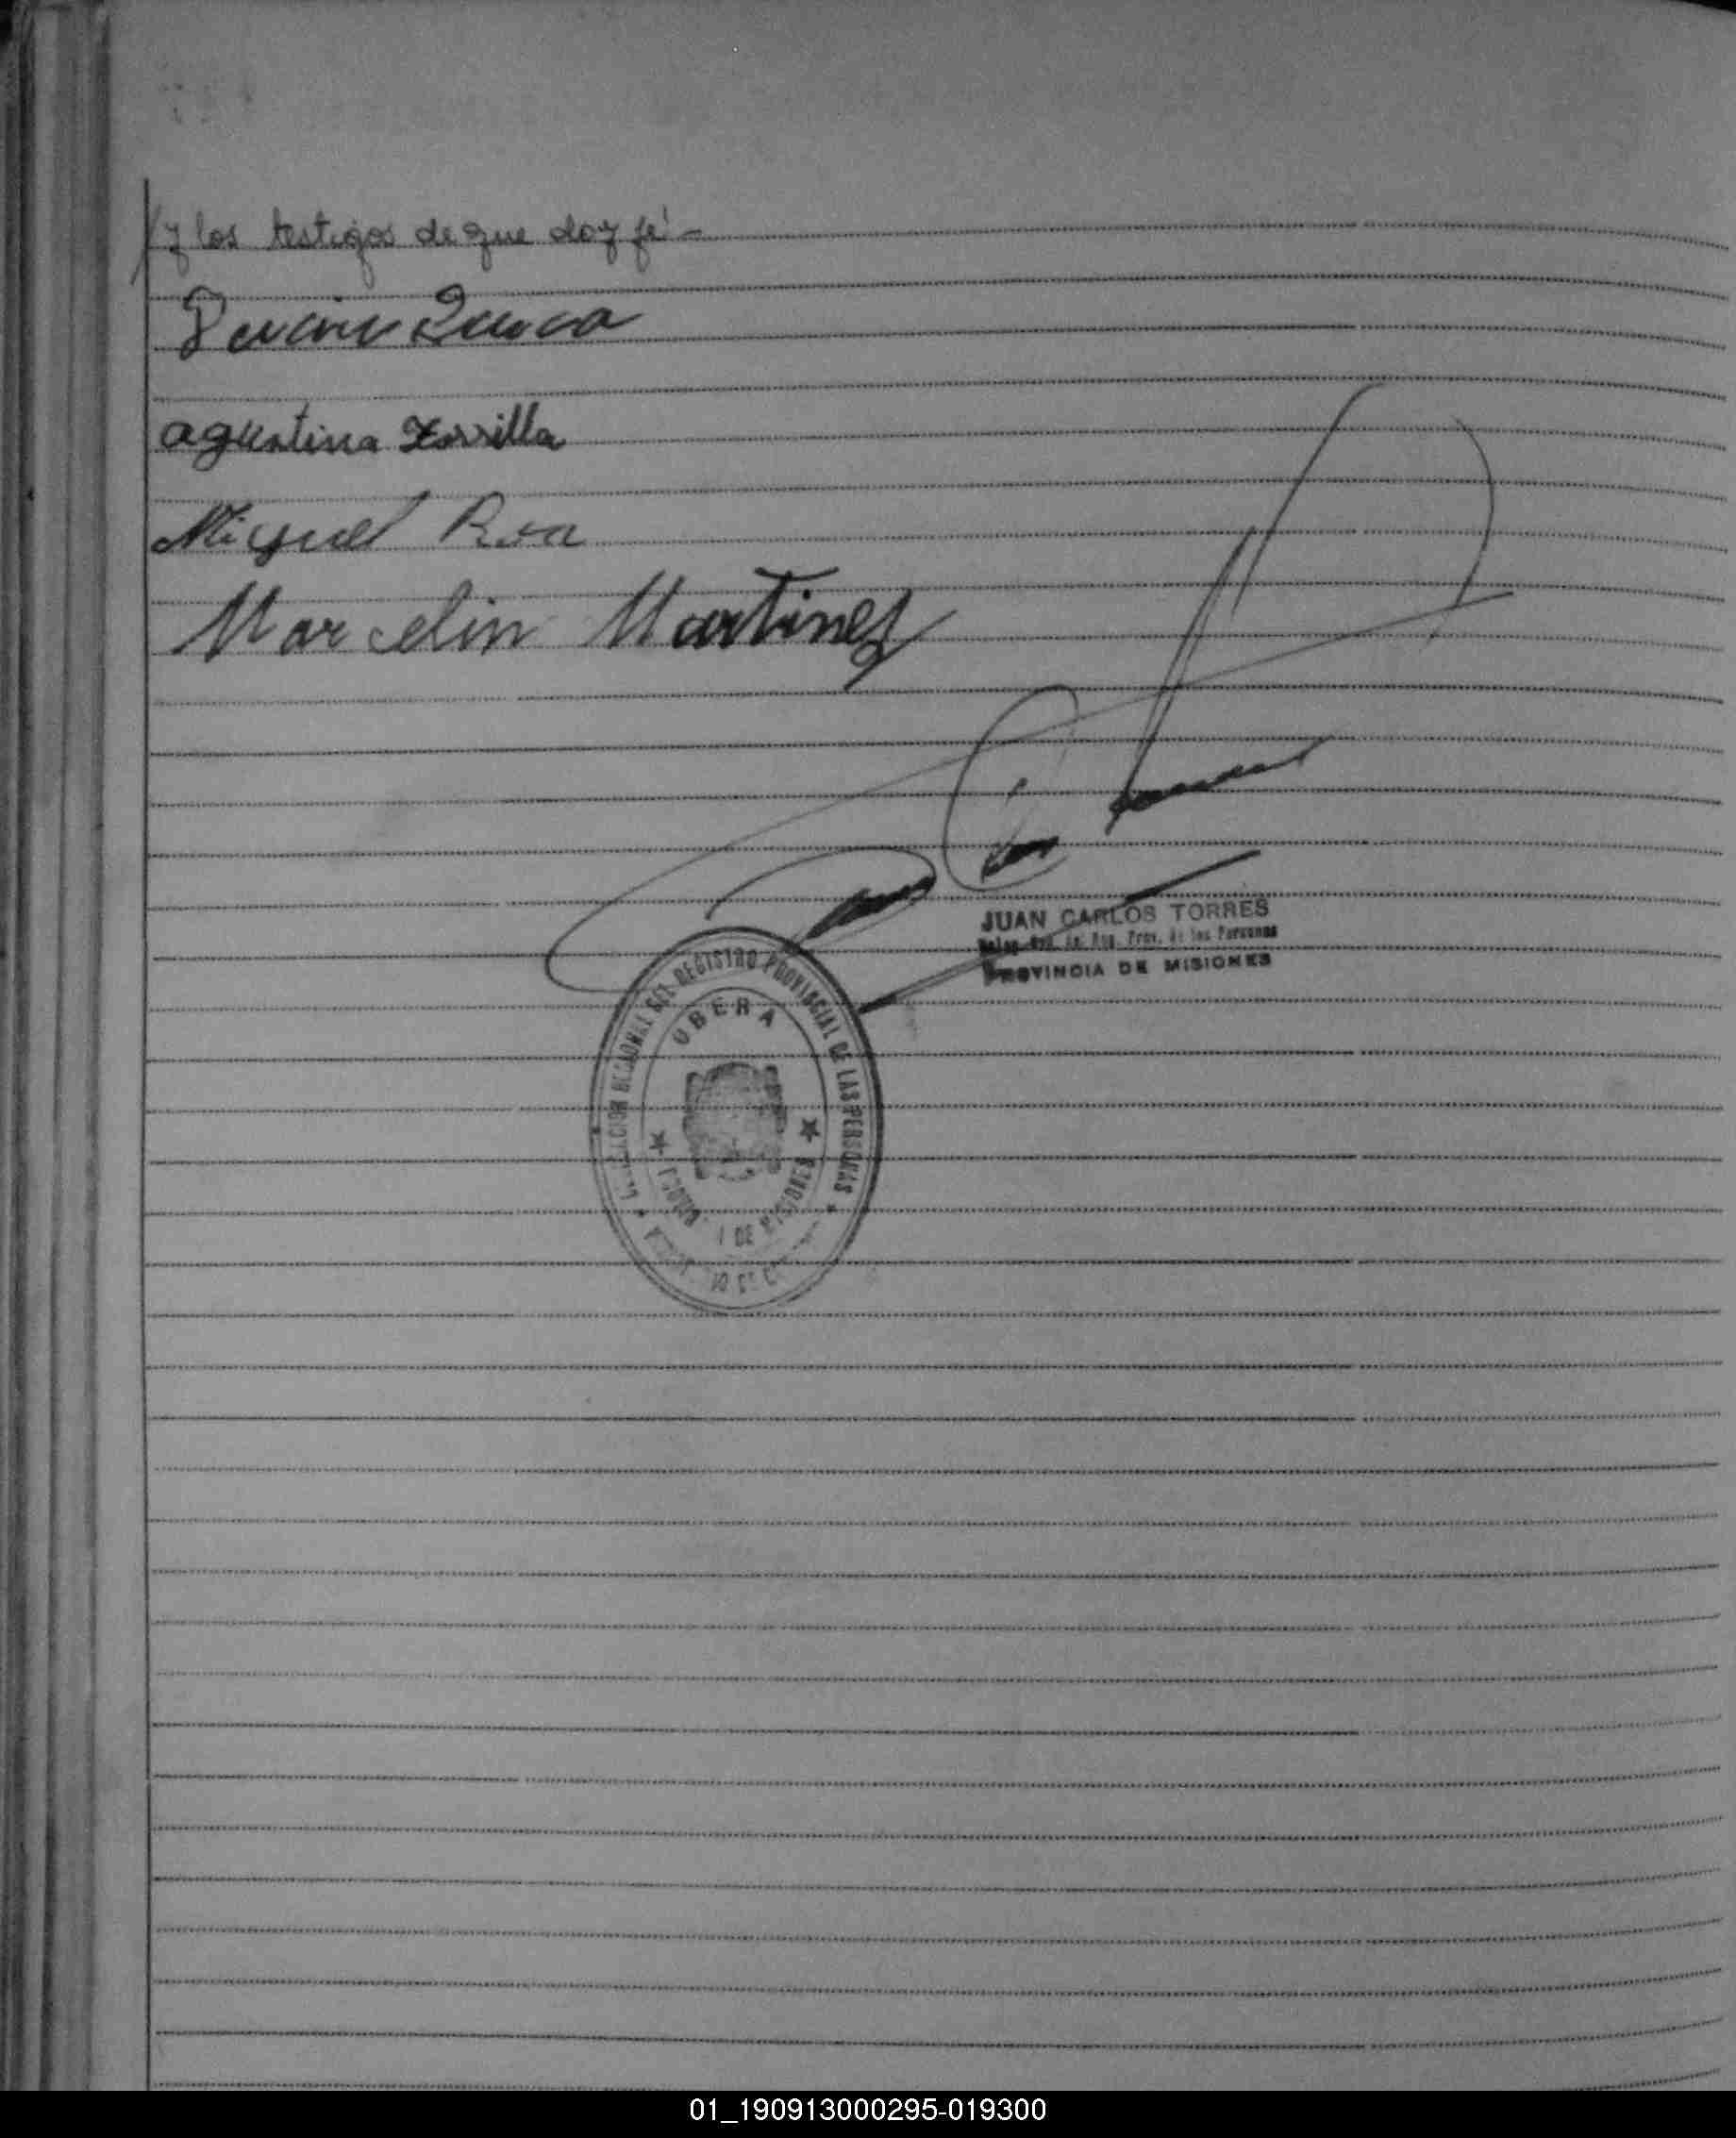 y los testigos de que doy fé -
agustina Zorrilla
Miguel Roa
Marcelin Martinez
JUAN CARLOS TORRES
Prov. de las Personas
PROVINCIA DE MISIONES
DEL REGISTRO PROVINCIAL DE LAS PERSONAS
OBERA
01_190913000295-019300